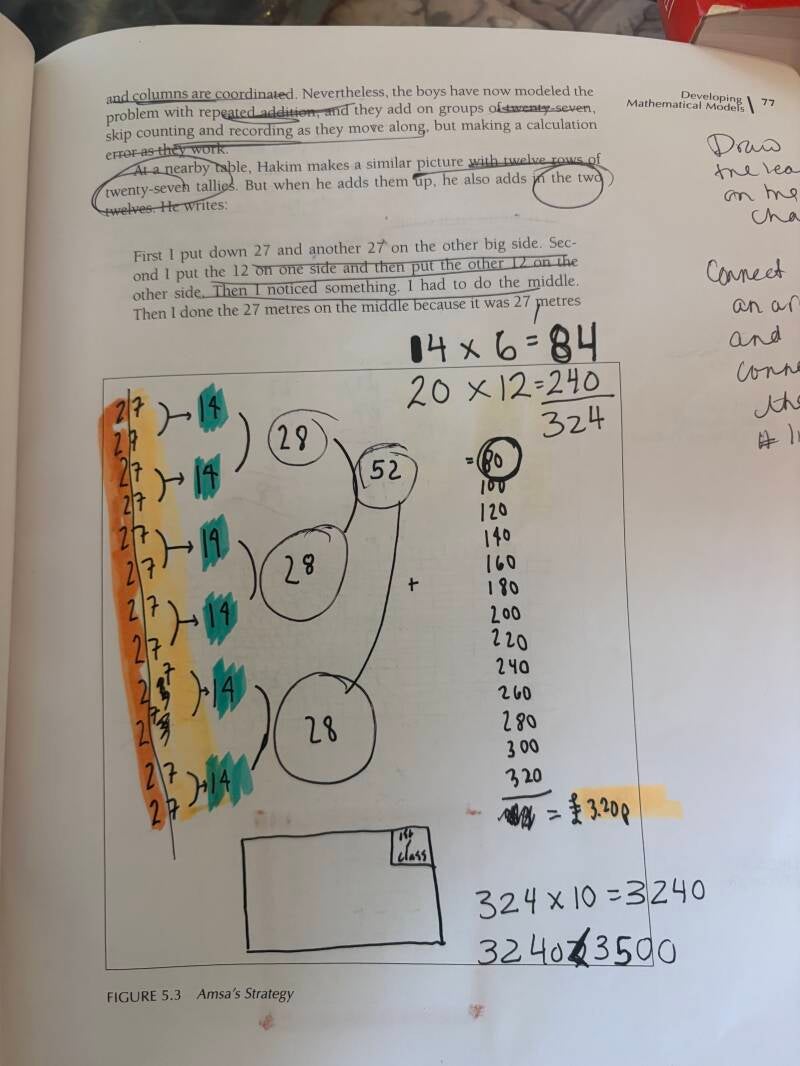 Developing
Mathematical Models 77
and columns are coordinated. Nevertheless, the boys have now modeled the
problem with repeated addition, and they add on groups of twenty-seven,
skip counting and recording as they move along, but making a calculation
error as they work.
At a nearby table, Hakim makes a similar picture with twelve rows of
twenty-seven tallies. But when he adds them up, he also adds in the two
twelves. He writes:
First I put down 27 and another 27 on the other big side. Sec-
ond I put the 12 on one side and then put the other 12 on the
other side. Then I noticed something. I had to do the middle.
Then I done the 27 metres on the middle because it was 27 metres
Draw
the
on the
Connect
and
14 x 6 = 84
20 x 12 = 240
324
27
27
14
28
27
27
14
52
27
27
14
28
27
27
14
27
27
14
28
27
27
14
+
= 80
100
120
140
160
180
200
220
240
260
280
300
320
= £3.20p
1st
class
324 x 10 = 3240
3240 < 3500
FIGURE 5.3 Amsa's Strategy